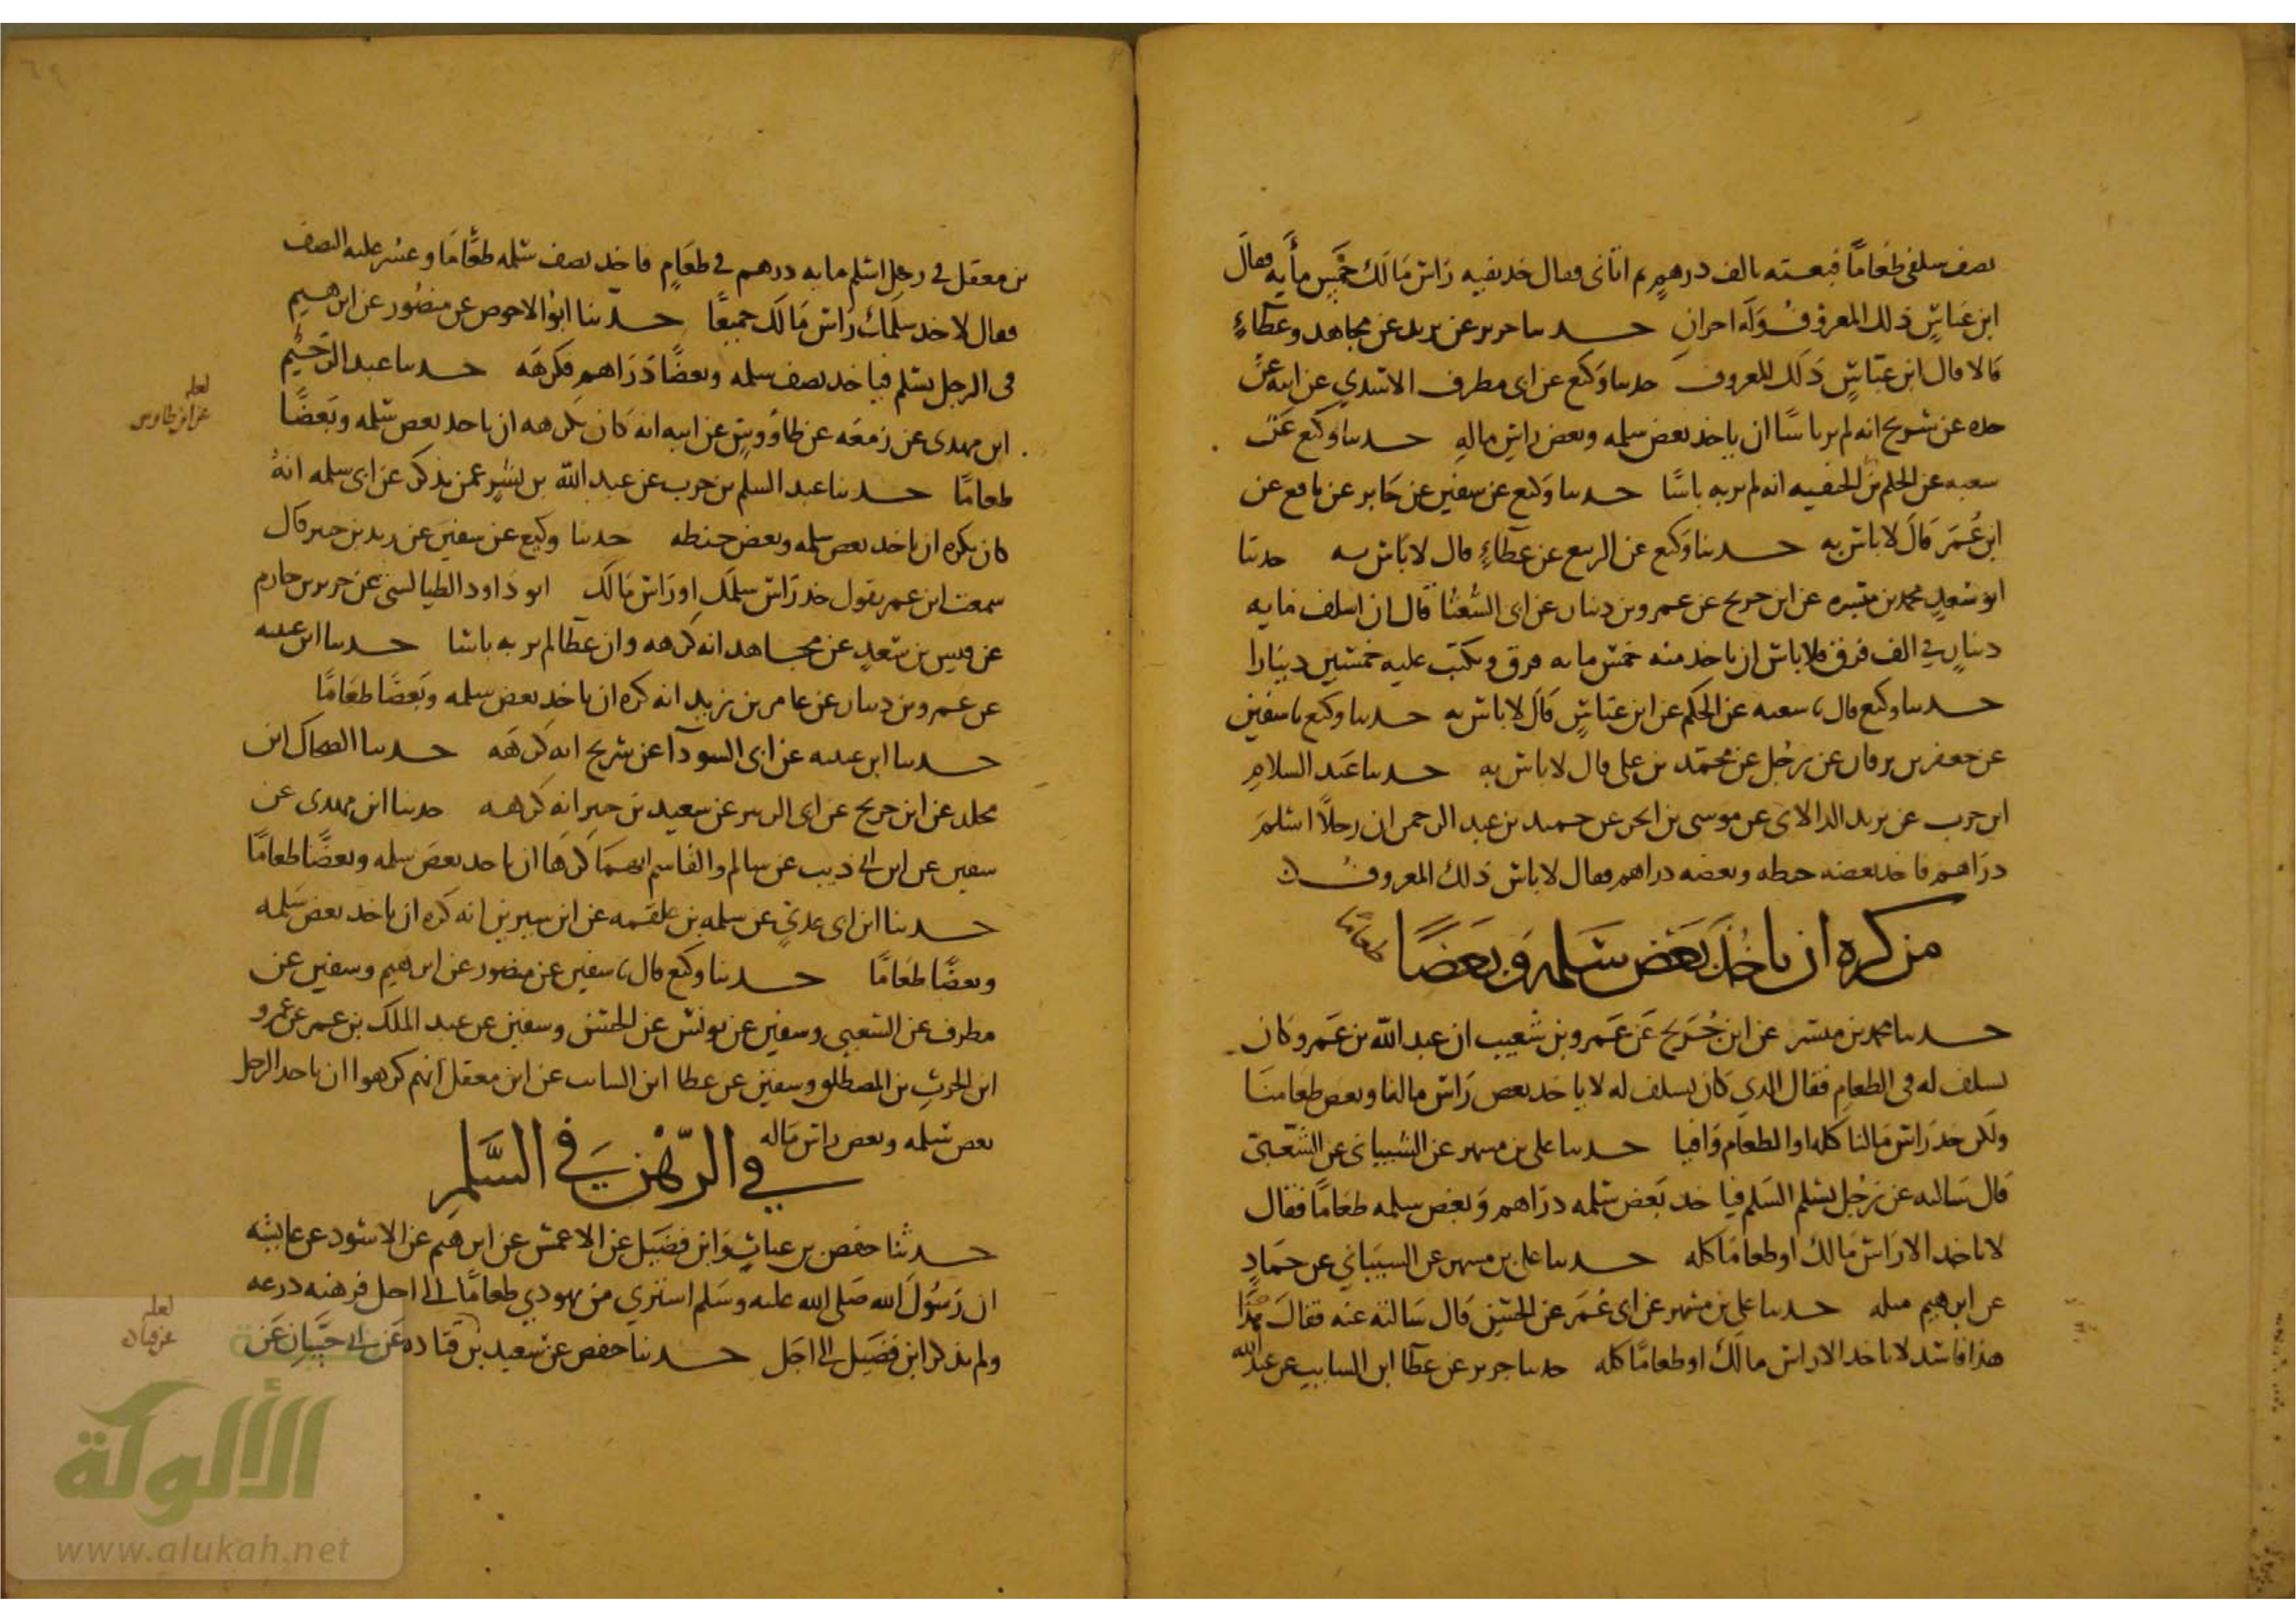 نصف سلفي طعاما فبعته بالف درهم ثم اتاني فقال خد بقيه راس مالك خمس مايه فقال
ابن عباس ذلك المعروف وله اجران حدثنا جرير عن يزيد عن مجاهد وعطاء
قالا قال ابن عباس ذلك المعروف حدثنا وكيع عن ابي مطرف الاسدي عن ابيه عن
جده عن شريح انه لم ير باسا ان ياخذ بعض سلمه وبعض راس ماله حدثنا وكيع عن
شعبه عن الحكم بن الحنفيه انه لم ير به باسا حدثنا وكيع عن سفين عن جابر عن نافع عن
ابن عمر قال لا باس به حدثنا وكيع عن الربيع عن عطاء قال لا باس به حدثنا
ابو سعد محمد بن ميسره عن ابن جريج عن عمرو بن دينار عن ابي الشعثا قال ان اسلف مايه
دينار في الف فرق فلا باس ان ياخذ منه خمس مايه فرق ويكتب عليه خمسين دينارا
حدثنا وكيع قال نا شعبه عن الحكم عن ابن عباس قال لا باس به حدثنا وكيع نا سفين
عن جعفر بن برقان عن رجل عن محمد بن علي قال لا باس به حدثنا عبد السلام
ابن حرب عن يزيد الدالاني عن موسى بن ابجر عن حميد بن عبد الرحمن ان رجلا اسلم
دراهم فاخذ بعضه حنطه وبعضه دراهم فقال لا باس ذلك المعروف
من كره ان ياخذ بعض سلمه وبعضا طعاما
حدثنا محمد بن ميسر عن ابن جريج عن عمرو بن شعيب ان عبد الله بن عمرو كان
يسلف له في الطعام فقال للذي كان يسلف له لا ياخذ بعض راس مالنا وبعض طعامنا
ولكن خذ راس مالنا كله او الطعام وافيا حدثنا علي بن مسهر عن الشيباني عن الشعبي
قال سالته عن رجل يسلم السلم فياخذ بعض سلمه دراهم وبعض سلمه طعاما فقال
لا تاخذ الا راس مالك او طعاما كله حدثنا علي بن مسهر عن الشيباني عن حماد
عن ابرهيم مثله حدثنا علي بن مسهر عن ابي عمر عن الحسن قال سالته عنه فقال
هذا فاسد لا تاخذ الا راس مالك او طعاما كله حدثنا جرير عن عطا ابن السايب عن عبد الله
بن معقل في رجل اسلم مايه درهم في طعام فاخذ نصف سلمه طعاما وعسر عليه النصف
فقال لا خذ سلمك او راس مالك جميعا حدثنا ابو الاحوص عن منصور عن ابرهيم
في الرجل يسلم فياخذ نصف سلمه وبعضا دراهم فكرهه حدثنا عبد الرحيم
ابن مهدي عن زمعه عن طاووس عن ابيه انه كان يكره ان ياخذ بعض سلمه وبعضا
لعله
عن ابن طاوس
طعاما حدثنا عبد السلم بن حرب عن عبد الله بن بشير عمن يذكر عن ابي سلمه انه
كان يكره ان ياخذ بعض سلمه وبعض حنطه حدثنا وكيع عن سفين عن زيد بن جبير قال
سمعت ابن عمر يقول خذ راس سلمك او راس مالك ابو داود الطيالسي عن جرير بن حازم
عن قيس بن سعد عن مجاهد انه كرهه وان عطا لم ير به باسا حدثنا ابن عليه
عن عمرو بن دينار عن عامر بن زيد انه كره ان ياخذ بعض سلمه وبعضا طعاما
حدثنا ابن عيينه عن ابي السودا عن شريح انه كرهه حدثنا الضحاك ابن
مخلد عن ابن جريج عن ابي الزبير عن سعيد بن جبير انه كرهه حدثنا ابن مهدي عن
سفين عن ابن ابي ذيب عن سالم والقاسم انهما كرها ان ياخذ بعض سلمه وبعضا طعاما
حدثنا ابن ابي عدي عن سلمه بن علقمه عن ابن سيرين انه كره ان ياخذ بعض سلمه
وبعضا طعاما حدثنا وكيع قال نا سفين عن منصور عن ابرهيم وسفين عن
مطرف عن الشعبي وسفين عن يونس عن الحسن وسفين عن عبد الملك بن عمير عن عمرو
ابن الحرث بن المصطلق وسفين عن عطا ابن السايب عن ابن معقل انهم كرهوا ان ياخذ الرجل
بعض سلمه وبعض راس ماله
في الرهن في السلم
حدثنا حفص بن غياث وابن فضيل عن الاعمش عن ابرهيم عن الاسود عن عايشه
ان رسول الله صلى الله عليه وسلم اشترى من يهودي طعاما الى اجل فرهنه درعه
ولم يذكر ابن فضيل الى اجل حدثنا حفص عن سعيد بن قتاده عن ابي حيان عن
لعله
عن قتاده
الألوكة
www.alukah.net